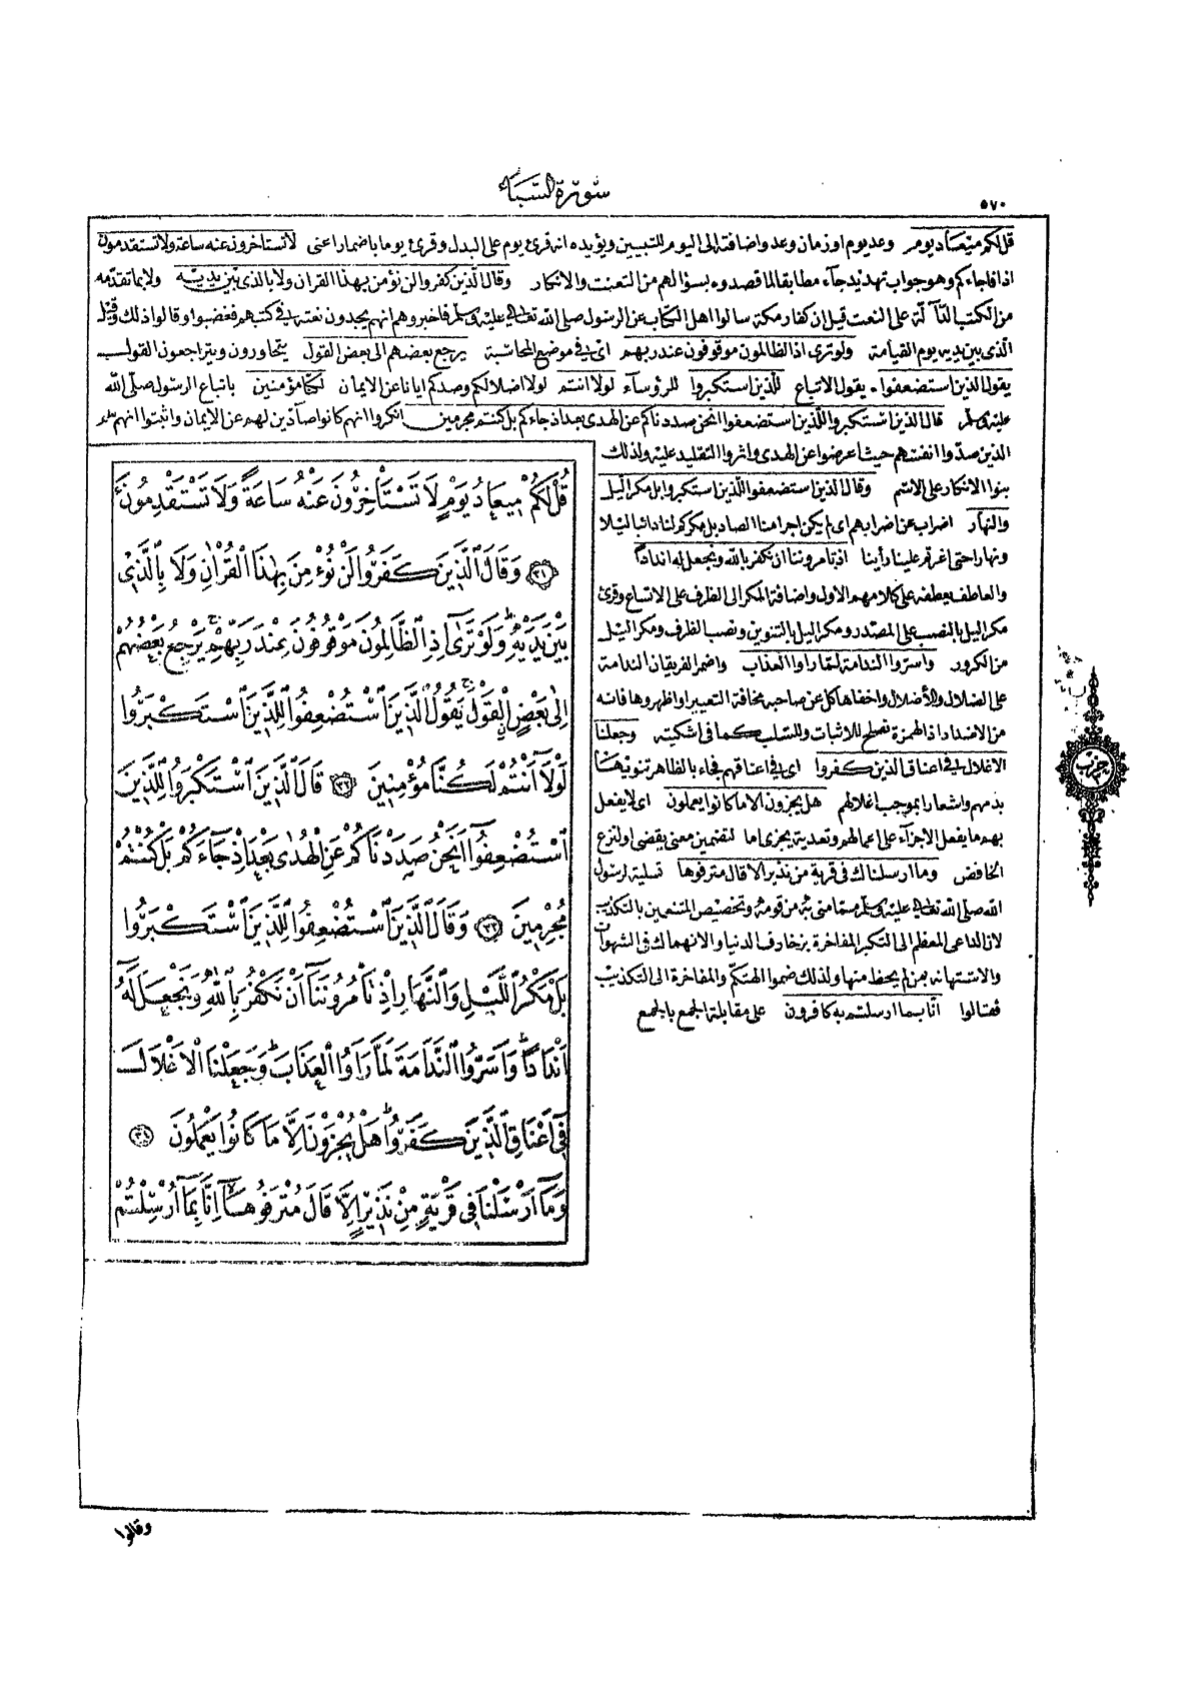 سورة السبأ
٥٧٠
قل لكم ميعاد يوم وعد يوم او زمان وعد واضافته الى اليوم للتبيين ويؤيده انه قرئ يوم على البدل وقرئ يوما باضمار اعنى لا تستاخرون عنه ساعة ولا تستقدمون
اذا فاجاءكم وهو جواب تهديد جاء مطابقا لما قصدوه بسؤالهم من التعنت والانكار وقال الذين كفروا لن نؤمن بهذا القران ولا بالذى بين يديه ولا بما تقدمه
من الكتب الدالة على النعت قيل ان كفار مكة سالوا اهل الكتاب عن الرسول صلى الله تعالى عليه وسلم فاخبروهم انهم يجدون نعته فى كتبهم فغضبوا وقالوا ذلك وقيل
الذى بين يديه يوم القيامة ولو ترى اذ الظالمون موقوفون عند ربهم اى فى موضع المحاسبة يرجع بعضهم الى بعض القول يتحاورون ويتراجعون القول
يقول الذين استضعفوا يقول الاتباع للذين استكبروا للرؤساء لولا انتم لولا اضلالكم وصدكم ايانا عن الايمان لكنا مؤمنين باتباع الرسول صلى الله
عليه وسلم قال الذين استكبروا للذين استضعفوا انحن صددناكم عن الهدى بعد اذ جاءكم بل كنتم مجرمين انكروا انهم كانوا صادين لهم عن الايمان واثبتوا انهم هم
الذين صدوا انفسهم حيث اعرضوا عن الهدى واثروا التقليد عليه ولذلك
بنوا الانكار على الاسم وقال الذين استضعفوا للذين استكبروا بل مكر اليل
والنهار اضراب عن اضرابهم اى لم يكن اجرامنا الصاد بل مكركم لنا دائبا ليلا
ونهارا حتى اغرتم علينا رأينا اذ تامروننا ان نكفر بالله ونجعل له اندادا
والعاطف يعطفه على كلامهم الاول واضافة المكر الى الظرف على الاتساع وقرئ
مكر اليل بالنصب على المصدر ومكر اليل بالتنوين ونصب الظرف ومكر اليل
من الكرور واسروا الندامة لما راوا العذاب واضمر الفريقان الندامة
على الضلال والأضلال واخفاها كل عن صاحبه مخافة التعيير او اظهروها فانه
من الاضداد اذ الهمزة تصلح للاثبات وللسلب كما فى اشكيته وجعلنا
الاغلال فى اعناق الذين كفروا اى فى اعناقهم فجاء بالظاهر تنويها
بذمهم واشعارا بموجب اغلالهم هل يجزون الا ما كانوا يعملون اى لا يفعل
بهم ما يفعل الاجزاء على اعمالهم وتعدية يجزى اما لتضمين معنى يقضى او لنزع
الخافض وما ارسلناك فى قرية من نذير الا قال مترفوها تسلية لرسول
الله صلى الله تعالى عليه وسلم مما منى به من قومه وتخصيص المتنعمين بالتكذيب
لان الداعى المعظم الى التكبر المفاخرة بزخارف الدنيا والانهماك فى الشهوات
والاستهانة بمن لم يحظ منها ولذلك ضموا التهكم والمفاخرة الى التكذيب
فقالوا انا بما ارسلتم به كافرون على مقابلة الجمع بالجمع
قُلْ لَكُمْ مٖيعَادُ يَوْمٍ لَا تَسْتَأْخِرُونَ عَنْهُ سَاعَةً وَلَا تَسْتَقْدِمُونَ
٣١ وَقَالَ الَّذٖينَ كَفَرُوا لَنْ نُؤْمِنَ بِهٰذَا الْقُرْاٰنِ وَلَا بِالَّذٖى
بَيْنَ يَدَيْهِ وَلَوْ تَرٰٓى اِذِ الظَّالِمُونَ مَوْقُوفُونَ عِنْدَ رَبِّهِمْ يَرْجِعُ بَعْضُهُمْ
اِلٰى بَعْضٍ الْقَوْلَ يَقُولُ الَّذٖينَ اسْتُضْعِفُوا لِلَّذٖينَ اسْتَكْبَرُوا
لَوْلَا اَنْتُمْ لَكُنَّا مُؤْمِنٖينَ ٣٢ قَالَ الَّذٖينَ اسْتَكْبَرُوا لِلَّذٖينَ
اسْتُضْعِفُوا اَنَحْنُ صَدَدْنَاكُمْ عَنِ الْهُدٰى بَعْدَ اِذْ جَاءَكُمْ بَلْ كُنْتُمْ
مُجْرِمٖينَ ٣٣ وَقَالَ الَّذٖينَ اسْتُضْعِفُوا لِلَّذٖينَ اسْتَكْبَرُوا
بَلْ مَكْرُ الَّيْلِ وَالنَّهَارِ اِذْ تَأْمُرُونَنَا اَنْ نَكْفُرَ بِاللّٰهِ وَنَجْعَلَ لَهُ
اَنْدَادًا وَاَسَرُّوا النَّدَامَةَ لَمَّا رَاَوُا الْعَذَابَ وَجَعَلْنَا الْاَغْلَالَ
فٖى اَعْنَاقِ الَّذٖينَ كَفَرُوا هَلْ يُجْزَوْنَ اِلَّا مَا كَانُوا يَعْمَلُونَ ٣٤
وَمَا اَرْسَلْنَا فٖى قَرْيَةٍ مِنْ نَذٖيرٍ اِلَّا قَالَ مُتْرَفُوهَا اِنَّا بِمَا اُرْسِلْتُمْ
حزب
وقالوا